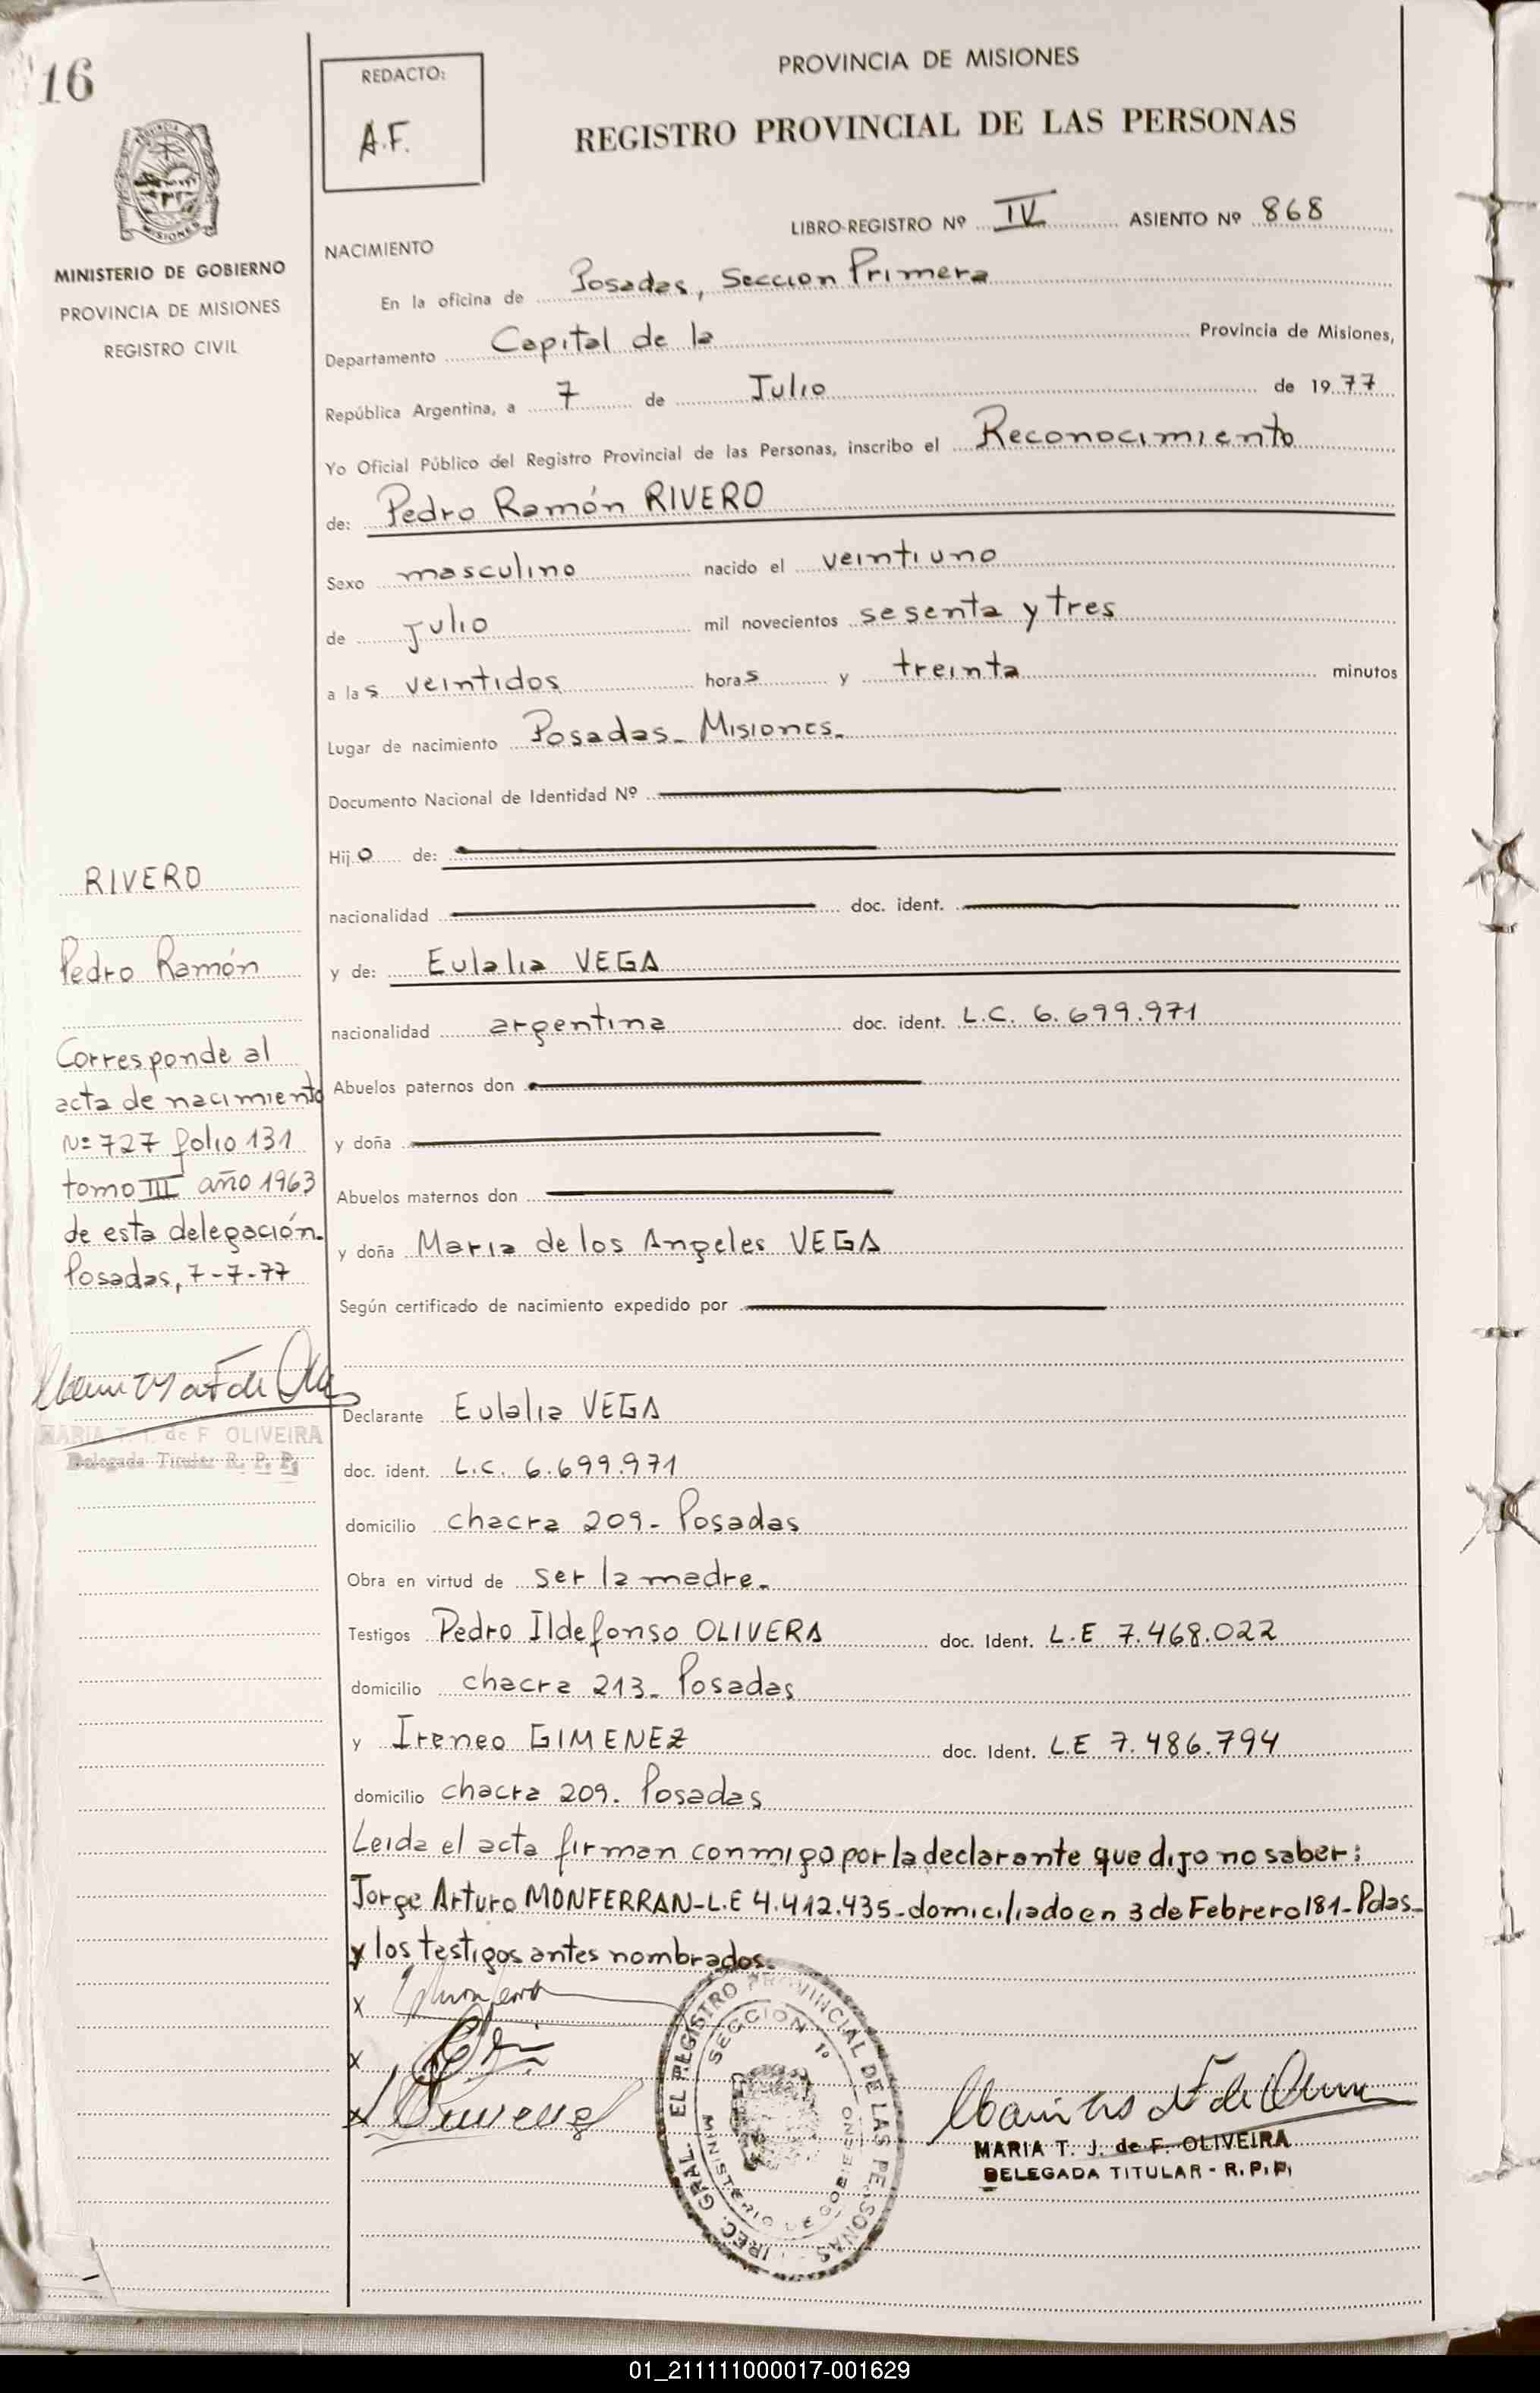 16
MINISTERIO DE GOBIERNO
PROVINCIA DE MISIONES
REGISTRO CIVIL
REDACTO:
A.F.
PROVINCIA DE MISIONES
REGISTRO PROVINCIAL DE LAS PERSONAS
LIBRO-REGISTRO Nº IV ASIENTO Nº 868
NACIMIENTO
En la oficina de Posadas, Seccion Primera
Departamento Capital de la Provincia de Misiones,
República Argentina, a 7 de Julio de 1977
Yo Oficial Público del Registro Provincial de las Personas, inscribo el Reconocimiento
de: Pedro Ramón RIVERO
Sexo masculino nacido el veintiuno
de julio mil novecientos sesenta y tres
a las veintidos horas y treinta minutos
Lugar de nacimiento Posadas - Misiones.
Documento Nacional de Identidad Nº
Hijo de:
nacionalidad doc. ident.
y de: Eulalia VEGA
nacionalidad argentina doc. ident. L.C. 6.699.971
Abuelos paternos don
y doña
Abuelos maternos don
y doña Maria de los Angeles VEGA
Según certificado de nacimiento expedido por
Declarante Eulalia VEGA
doc. ident. L.C. 6.699.971
domicilio chacra 209 - Posadas
Obra en virtud de ser la madre.
Testigos Pedro Ildefonso OLIVERA doc. Ident. L.E 7.468.022
domicilio chacra 213 - Posadas
y Ireneo GIMENEZ doc. Ident. L.E 7.486.794
domicilio chacra 209. Posadas
Leida el acta firman conmigo por la declarante que dijo no saber:
Jorge Arturo MONFERRAN - L.E 4.412.435 - domiciliado en 3 de Febrero 181 - Pdas -
y los testigos antes nombrados.
x
x
x
RIVERO
Pedro Ramón
Corresponde al
acta de nacimiento
Nº 727 folio 131
tomo III año 1963
de esta delegación.
Posadas, 7-7-77
MARIA T. J. de F. OLIVEIRA
Delegada Titular R. P. P.
DIREC. GRAL. EL REGISTRO PROVINCIAL DE LAS PERSONAS
SECCION 1º
MINISTERIO DE GOBIERNO
MARIA T. J. de F. OLIVEIRA
DELEGADA TITULAR - R. P. P.
01_211111000017-001629